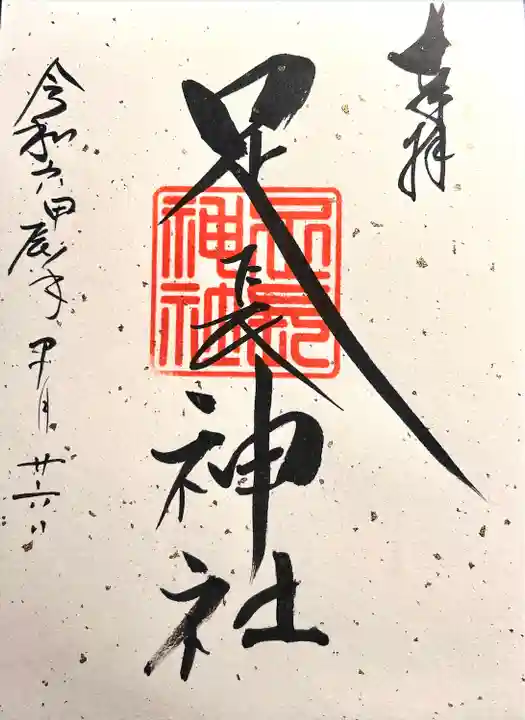 奉拝
足長神社
足長
神社
令和六甲辰年 月廿六日